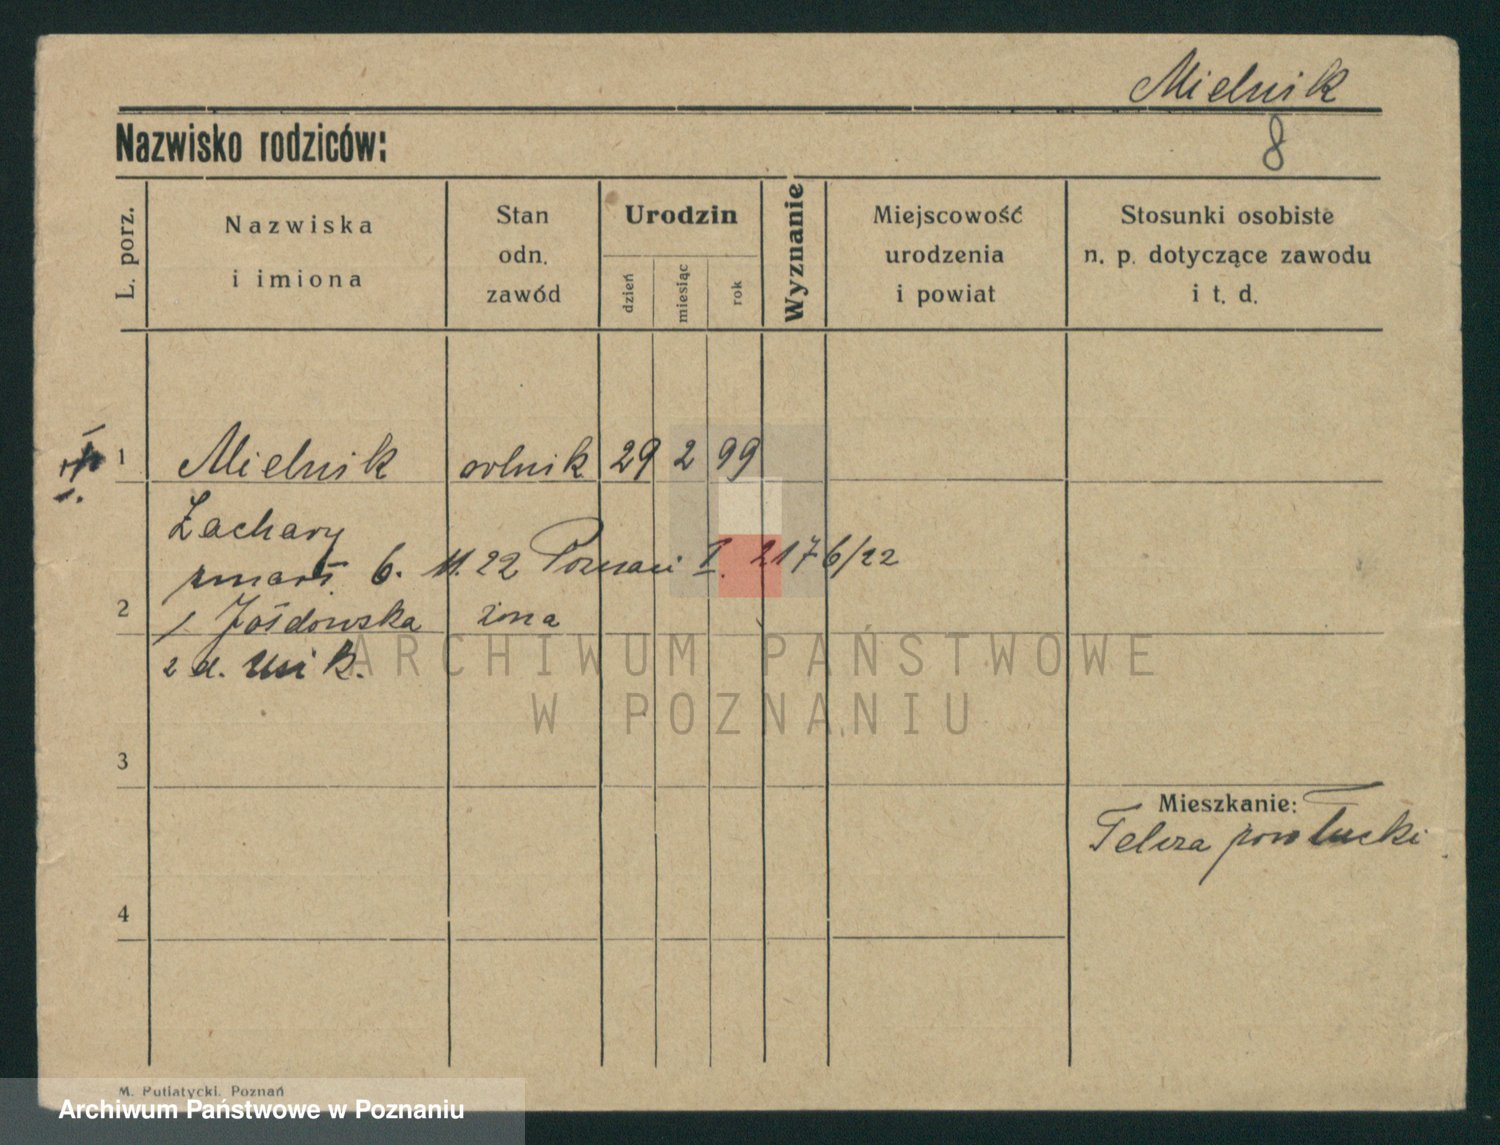 Mielnik
Nazwisko rodziców:
8
L. porz.
Nazwiska
i imiona
Stan
odn.
zawód
Urodzin
dzień
miesiąc
rok
Wyznanie
Miejscowość
urodzenia
i powiat
Stosunki osobiste
n. p. dotyczące zawodu
i t. d.
1 Mielnik rolnik 29 2 99
Zachary
zmarł 6. 11. 22 Poznań I. 2176/22
2
1 żona
2 d.
ARCHIWUM PAŃSTWOWE
W POZNANIU
3
Mieszkanie:
4
M. Putiatycki, Poznań
Archiwum Państwowe w Poznaniu